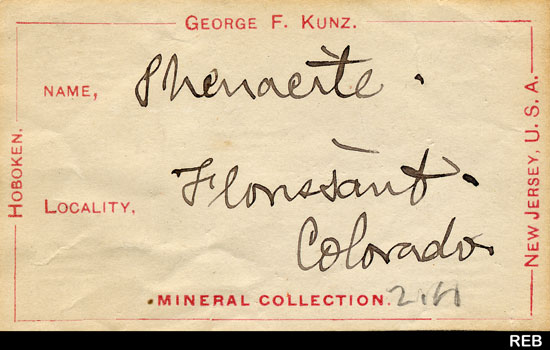 GEORGE F. KUNZ.
NAME, Phenacite.
HOBOKEN,
LOCALITY, Florissant.
Colorado.
NEW JERSEY, U. S. A.
MINERAL COLLECTION.
REB